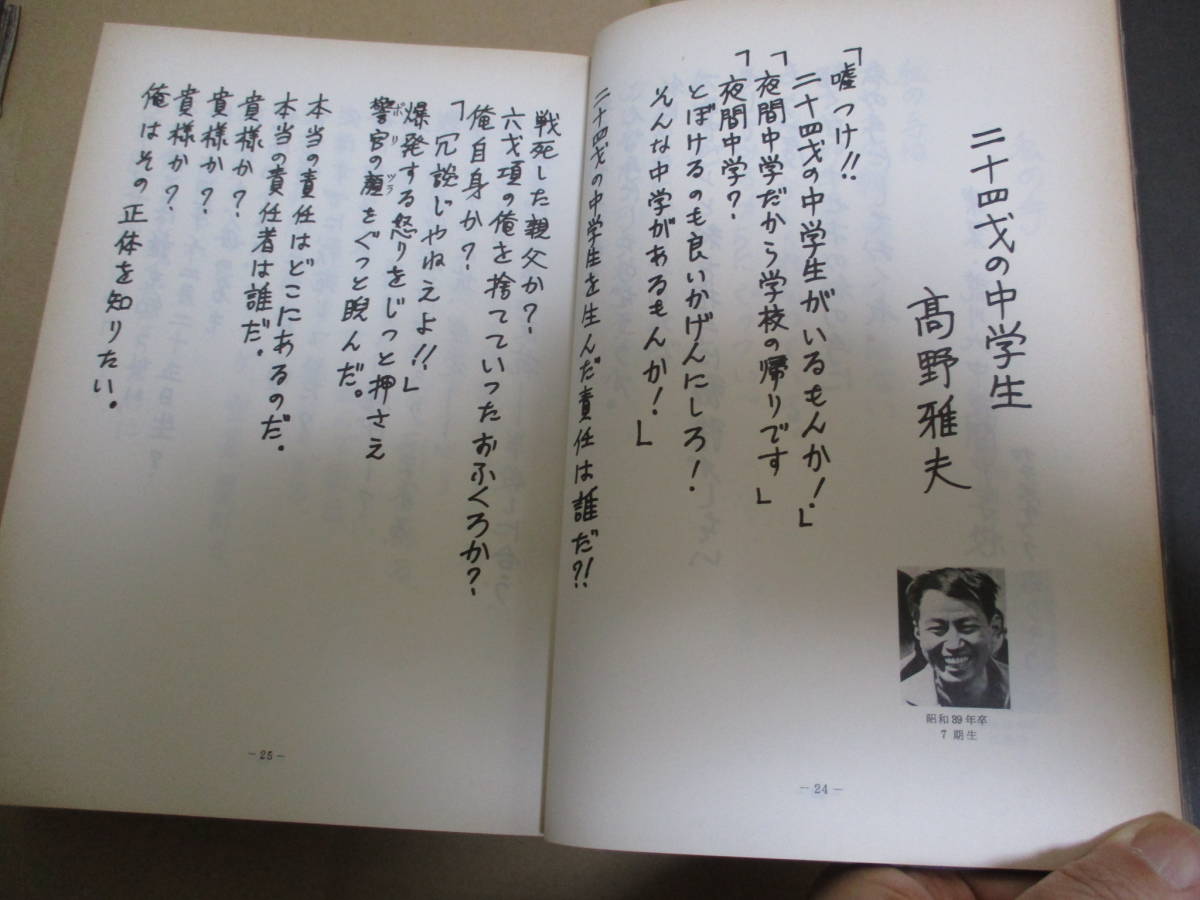 二十四才の中学生
髙野雅夫
「嘘つけ!!
二十四才の中学生がいるもんか！」
「夜間中学だから学校の帰りです」
「夜間中学？
とぼけるのも良いかげんにしろ！
そんな中学があるもんか！」
二十四才の中学生を生んだ責任は誰だ?!
昭和39年卒
7期生
－24－
戦死した親父か？
六才項の俺を捨てていったおふくろか？
俺自身か？
「冗談じゃねえよ!!」
爆発する怒りをじっと押さえ
警官の顔をぐっと睨んだ。
ポリ
ヅラ
本当の責任はどこにあるのだ。
本当の責任者は誰だ。
貴様か？
貴様か？
貴様か？
俺はその正体を知りたい。
－25－